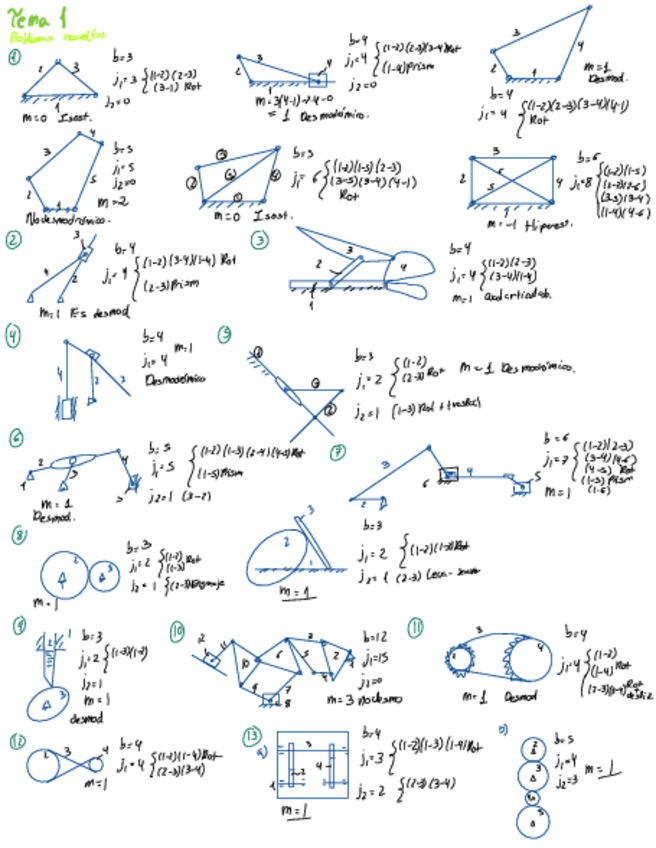 Tema 1
Problemas resueltos
1
b=3
j₁=3 {(1-2)(2-3)
(3-1) Rot
j₂=0
m=0 Isost.
b=4
j₁=4 {(1-2)(2-3)(3-4)Rot
(1-4)Prism
j₂=0
m=3(4-1)-2·4-0
= 1 Desmodrómico.
m=1
Desmod.
b=4
j₁=4 {(1-2)(2-3)(3-4)(4-1)
Rot
b=5
j₁=5
j₂=0
m=2
No desmodrómico.
b=5
j₁=6 {(1-2)(1-5)(2-3)
(3-5)(3-4)(4-1)
Rot
m=0 Isost.
b=6
j₁=8 {(1-2)(1-5)
(1-2)(2-6)
(3-5)(3-4)
(1-4)(4-6)
m=-1 Hiperest.
2
b=4
j₁=4 {(1-2)(3-4)(1-4) Rot
(2-3)Prism
m=1 Es desmod
3
b=4
j₁=4 {(1-2)(2-3)
(3-4)(1-4)
m=1
4
b=4
j₁=4
m=1
Desmodrómico
5
b=3
j₁=2 {(1-2)
(2-3) Rot
m=1 Desmodrómico.
j₂=1 (1-3)
6
b=5
j₁=5 {(1-2)(1-3)(2-4)(4-5)Rot
(1-5)Prism
j₂=1 (3-2)
m=1
Desmod.
7
b=6
j₁=7 {(1-2)(2-3)
(3-4)(4-6)
(4-5) Rot
(1-5) Prism
(1-6)
m=1
8
b=3
j₁=2 {(1-2)
(1-3) Rot
j₂=1 {(2-3)Engranaje
m=1
b=3
j₁=2 {(1-2)(1-3)Rot
j₂=1 (2-3)
m=1
9
b=3
j₁=2 {(1-3)(1-2)
j₂=1
m=1
desmod
10
b=12
j₁=15
j₂=0
m=3 no desmo
11
b=4
j₁=4 {(1-2)
(1-4) Rot
(2-3)(3-4) Rot + desliz
m=1 Desmod
12
b=4
j₁=4 {(1-2)(1-4)Rot
(2-3)(3-4)
m=1
13
a)
b=4
j₁=3 {(1-2)(1-3)(1-4)Rot
j₂=2 {(2-3)(3-4)
m=1
b)
b=5
j₁=4
j₂=3
m=1